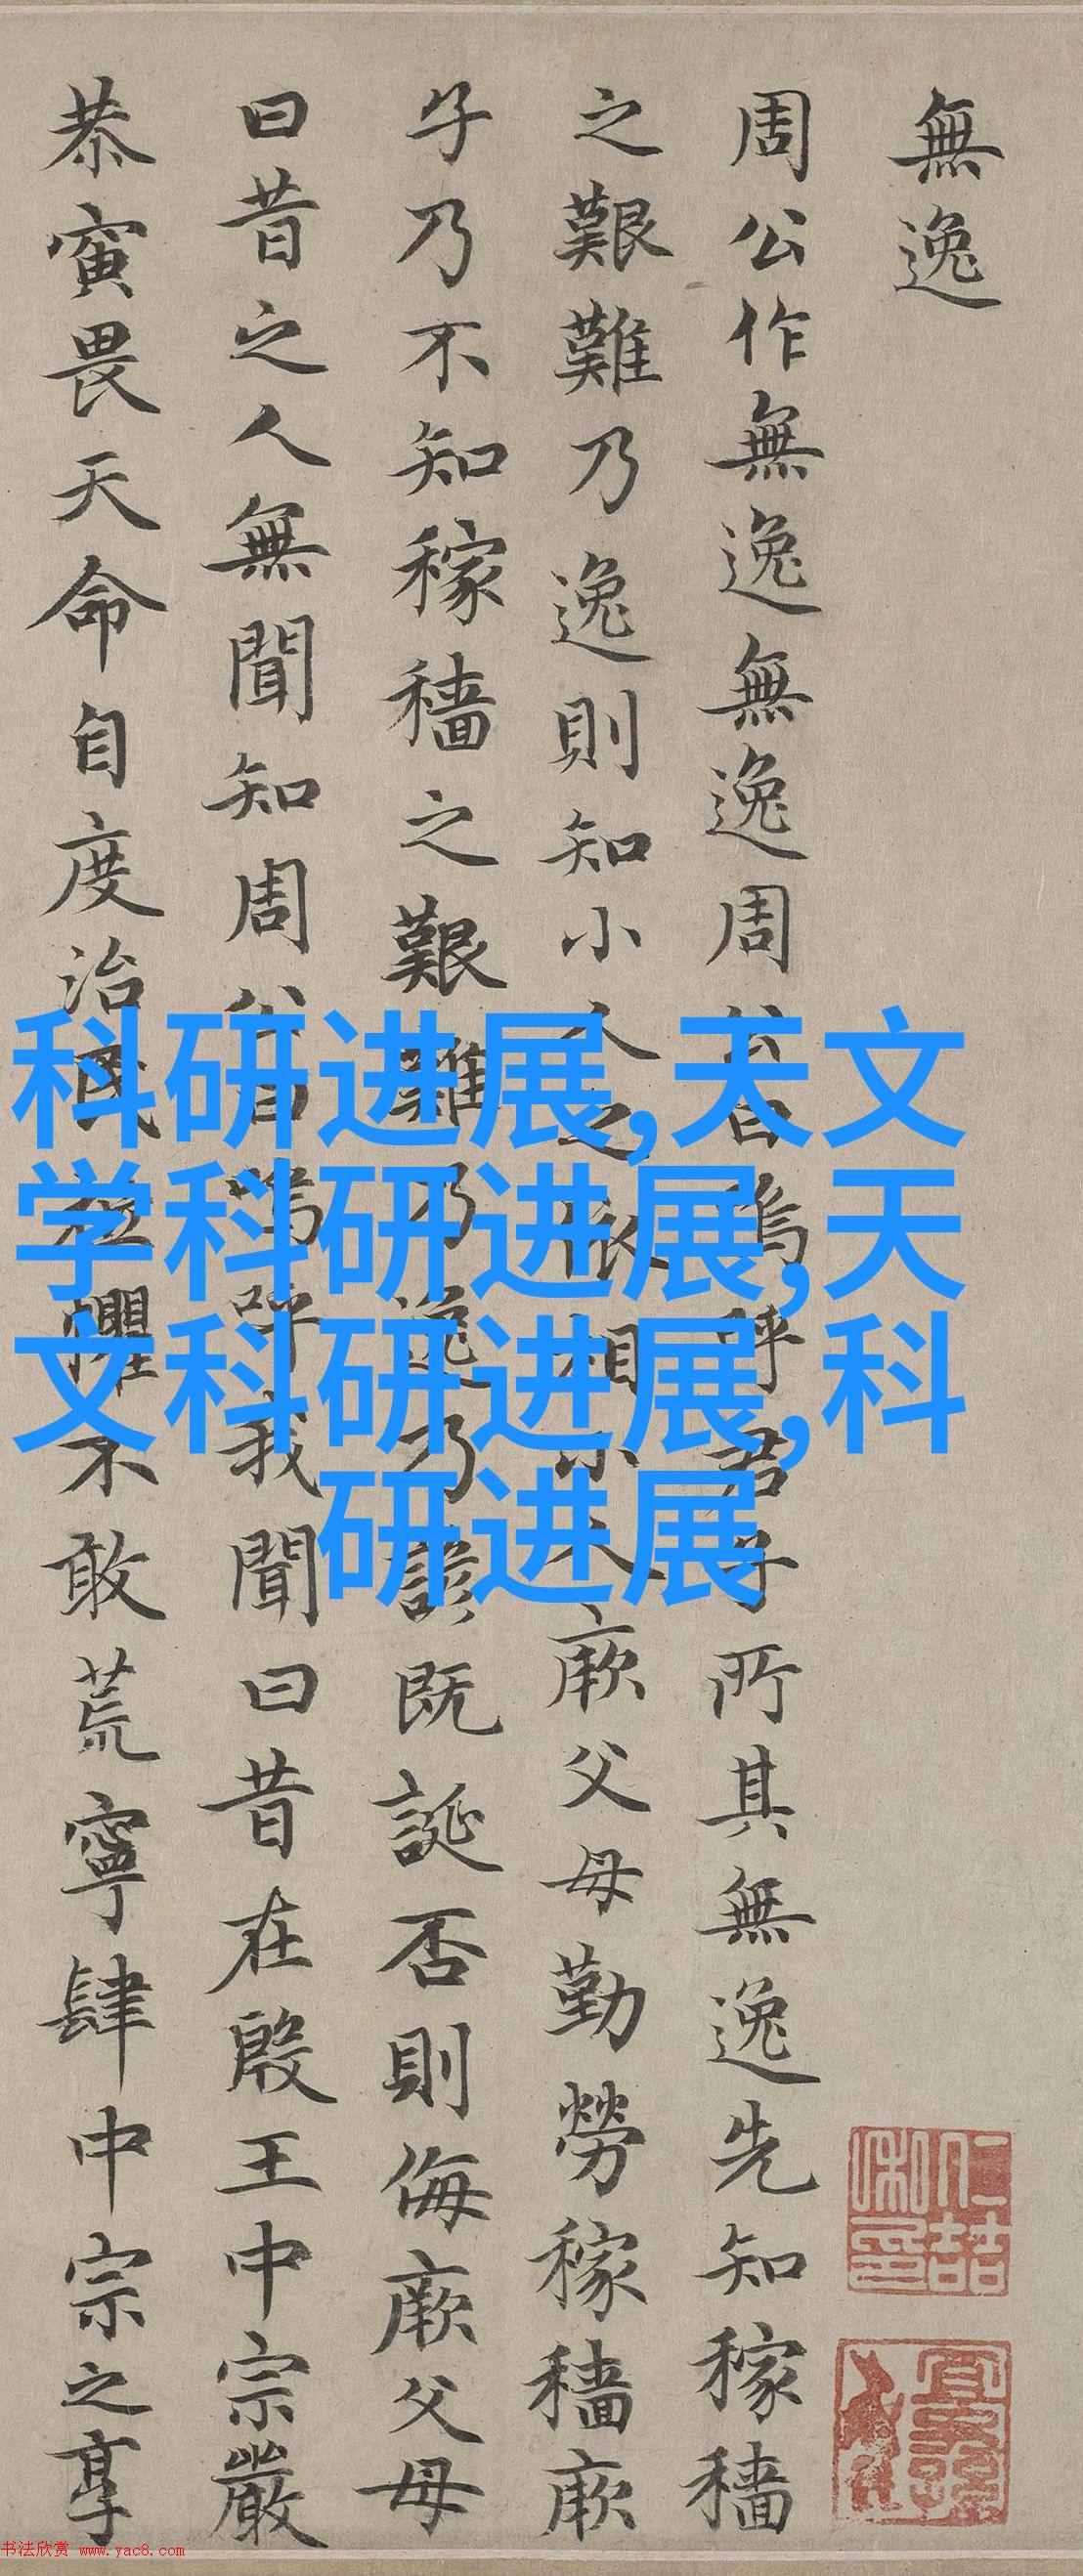 無逸
周公作無逸無逸周公曰嗚呼君子所其無逸先知稼穡
之艱難乃逸則知小人之依相小人厥父母勤勞稼穡厥
子乃不知稼穡之艱難乃逸乃諺既誕否則侮厥父母
曰昔之人無聞知周公曰嗚呼我聞曰昔在殷王中宗嚴
恭寅畏天命自度治民祗懼不敢荒寧肆中宗之享
科研进展,天文
学科研进展,天
文科研进展,科
研进展
书法欣赏 www.yac8.com